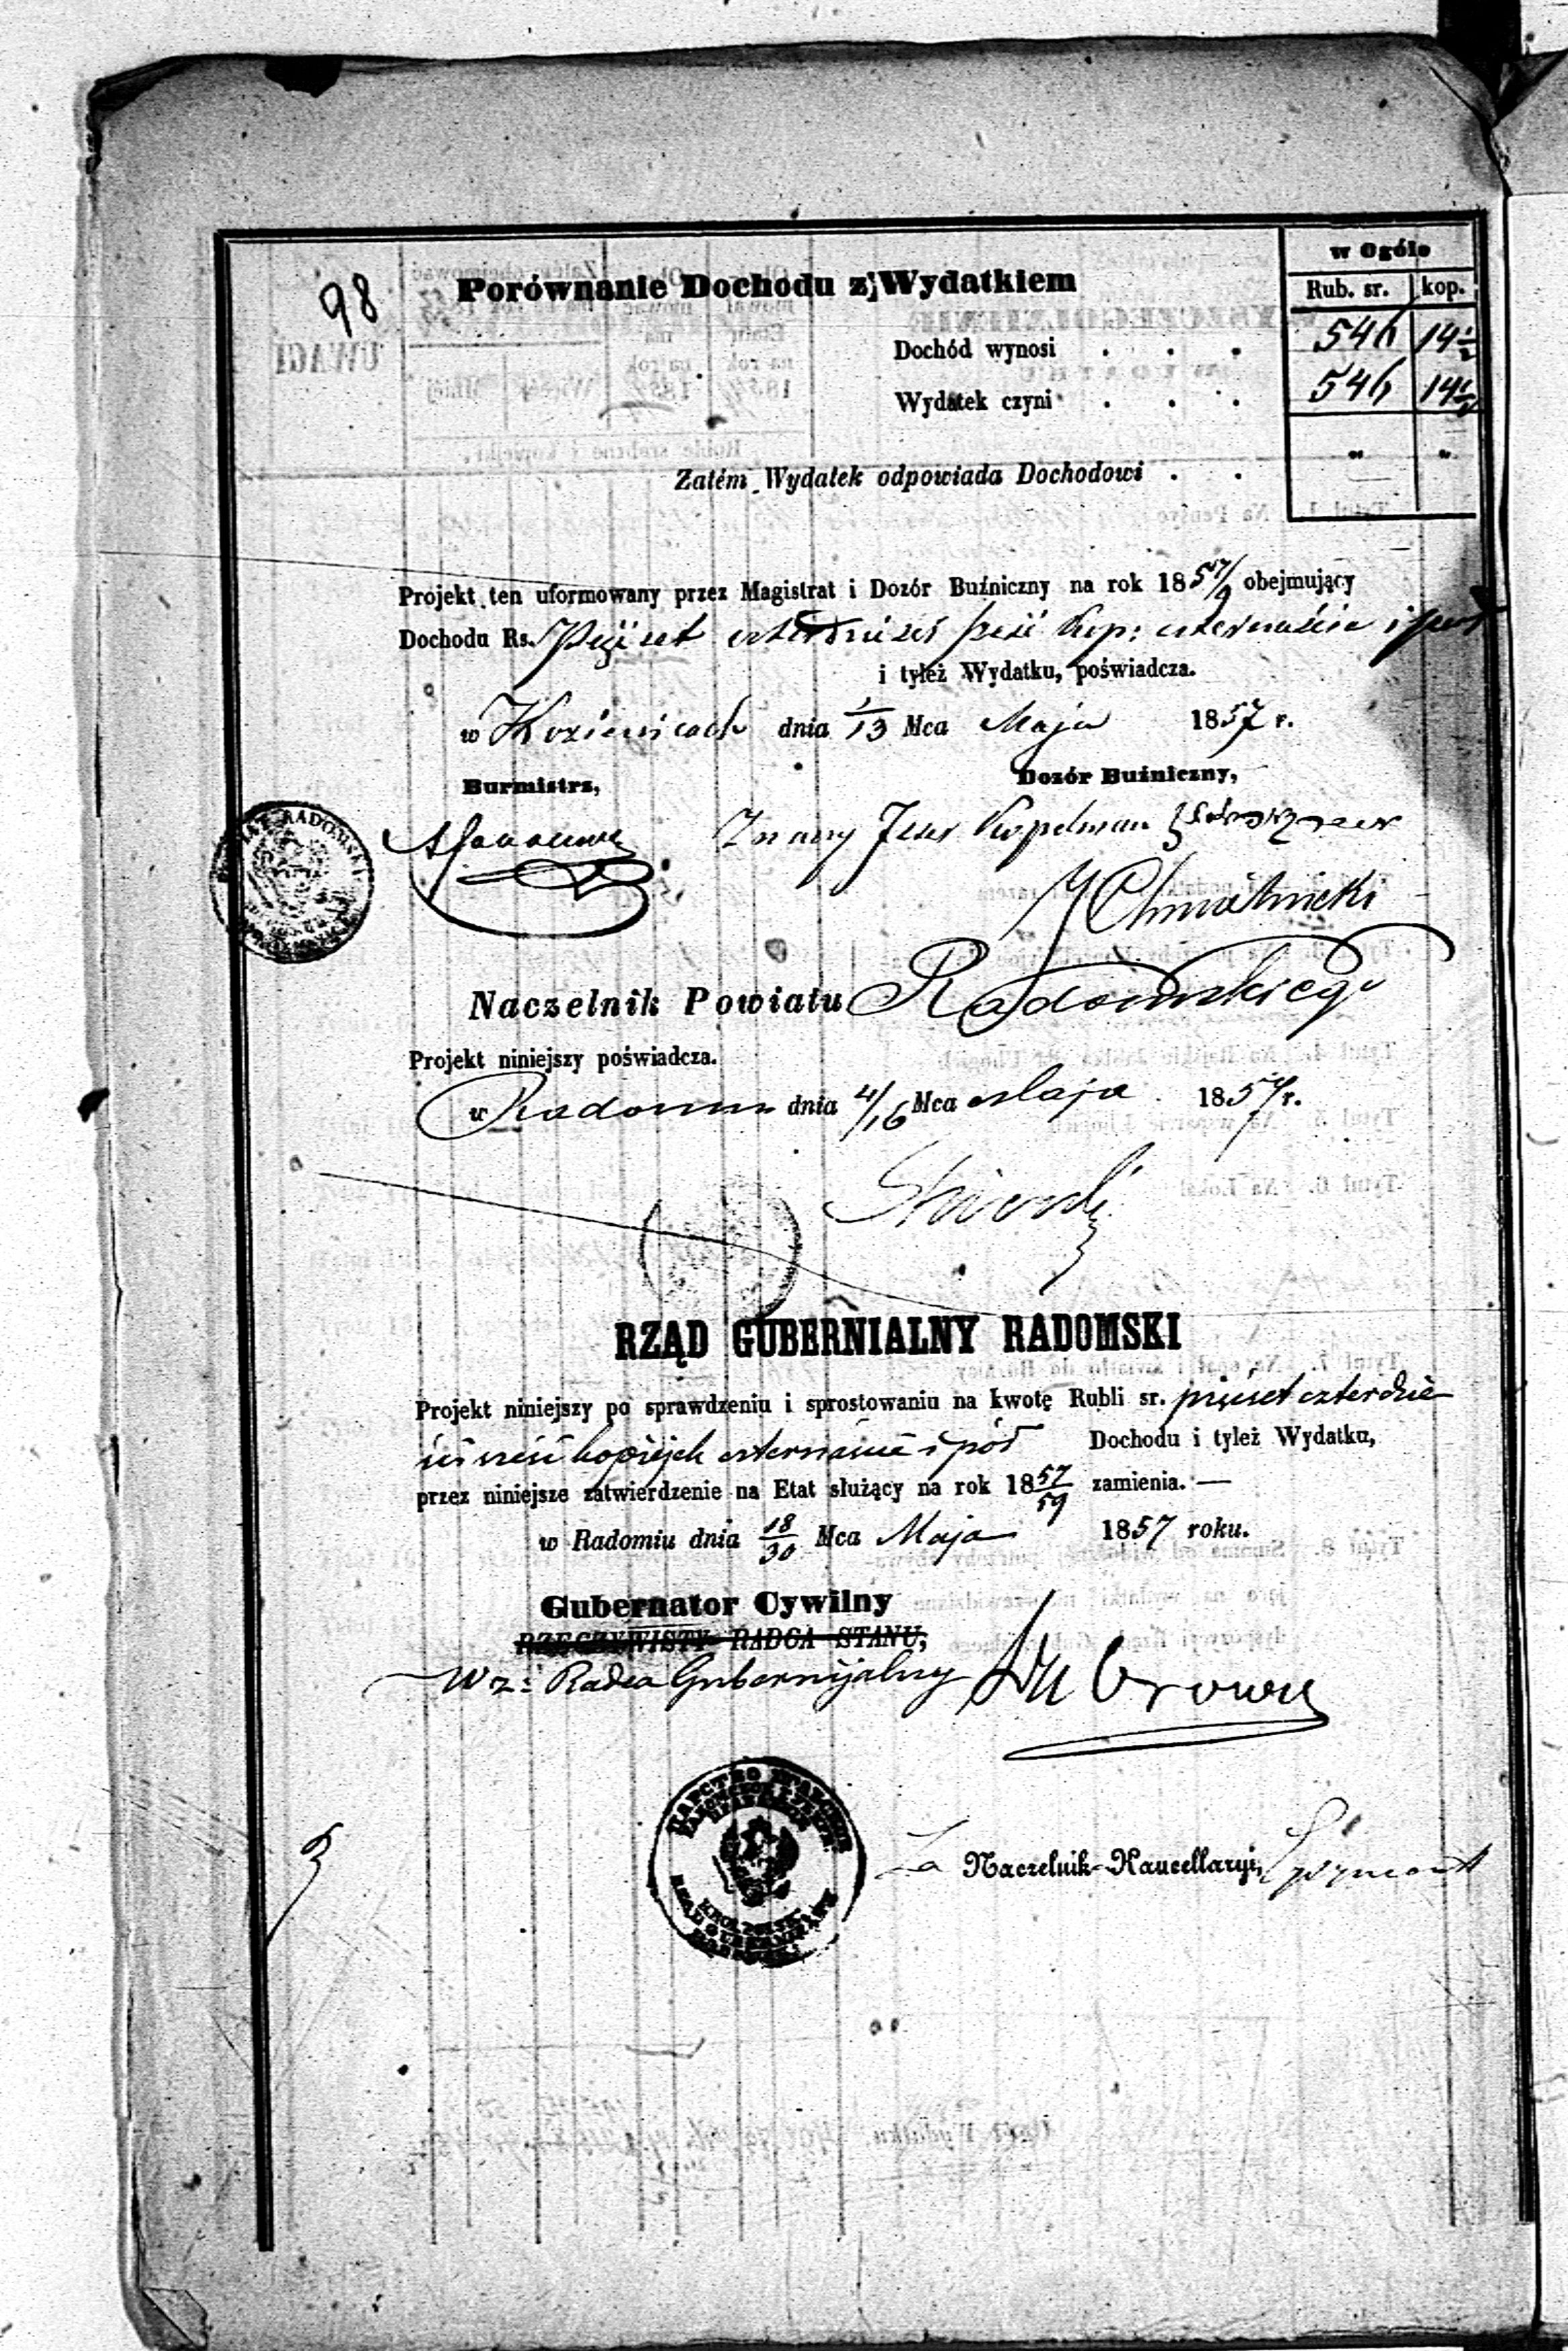 98
Porównanie Dochodu z Wydatkiem
w Ogóle
Rub. sr. kop.
Dochód wynosi . . . 546 14½
Wydatek czyni . . . 546 14½
Zatém Wydatek odpowiada Dochodowi . . " "
Projekt ten uformowany przez Magistrat i Dozór Buźniczny na rok 1857/9 obejmujący
Dochodu Rs. Pięćset czterdzieści sześć kop: czternaście i pół
i tyleż Wydatku, poświadcza.
w Kozienicach dnia 1/13 Mca Maja 1857 r.
Burmistrz,
Dozór Buźniczny,
Kopelman
J Chmielnicki
Naczelnik Powiatu Radomskiego
Projekt niniejszy poświadcza.
w Radomiu dnia 4/16 Mca Maja 1857 r.
RZĄD GUBERNIALNY RADOMSKI
Projekt niniejszy po sprawdzeniu i sprostowaniu na kwotę Rubli sr. pięćset czterdzie
ści sześć kopiejek czternaście i pół Dochodu i tyleż Wydatku,
przez niniejsze zatwierdzenie na Etat służący na rok 1857/59 zamienia. —
w Radomiu dnia 18/30 Mca Maja 1857 roku.
Gubernator Cywilny
RZECZYWISTY RADCA STANU,
W z: Radca Gubernijalny
Za Naczelnik Kancellaryi,